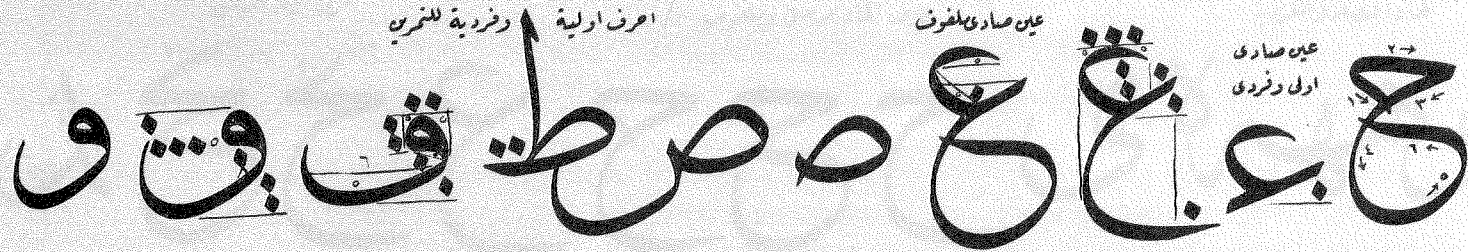 احرف اولية وفردية للتمرين
عين صادى ملفوف
عين صادى
اولى وفردى
ح عـ ع ع صـ ص ط ف و و